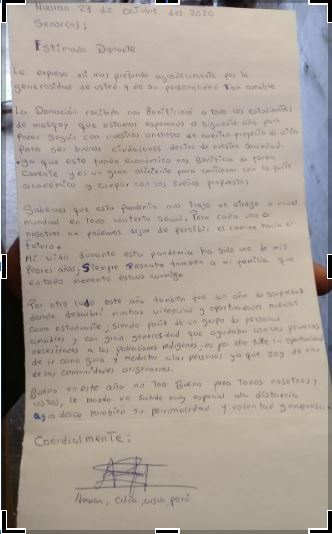 Nuaran 21 de octubre del 2020
Señor(a):
Estimado Donante
Le expreso mi mas profundo agradecimiento por la
generosidad de usted y de su personalidad tan amable
La Donación recibida nos Benificiara a todo los estudiantes
de mosqoy que estamos esperando el siguiente año para
Poder seguir con nuestros anchelos de nuestro proyecto de vida
Para ser buenos ciudadanos dentro de nuestra sociedad.
ya que este fundo económico nos Benificio de forma
y es un gran aliciente para continuar con la parte
académico y cumplir con sus sueños propuestos
Sabemos que esta Pandemia nos trajo un atraso a nivel
mundial en todo contexto social. Pero cada uno de
nosotros no podemos dejar de persibir el camino hacia el
futuro.
Mi vida durante esta pandemia ha sido uno de mis
Peores años, Siempre Rescato tambien a mi familia que
en todo momento estuvo conmigo
Por otro lado este año tambien fue un año de sorpresas
donde descubri muchas vivencias y oportunidades nuevas
como estudiante, siendo parte de un grupo de personas
amables y con gran generosidad que ayudaba con las primeras
necesidades a los indigenas. es por ello tube la oportunidad
de ir como guia y traductor a las personas ya que soy de una
de las comunidades originarias.
Bueno en este año no tan Bueno para todos nosotros y
usted, le mando un saludo muy especial a la distancia
agradesco tambien su personalidad y voluntad generosa.
Coordialmente:
Nuaran, Calca, cusco, perú